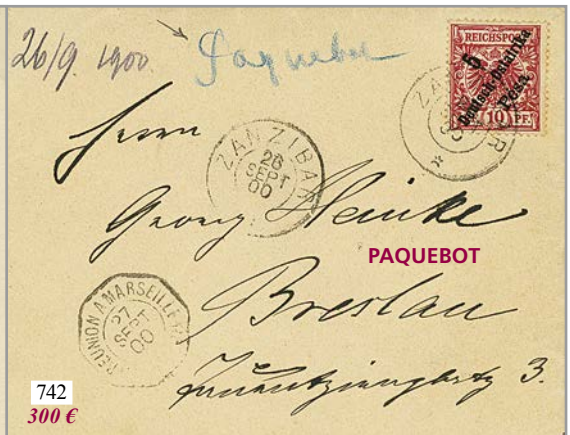 26/9. 1900. Paquebot
REICHSPOST
5
Deutsch-Ostafrika
Pesa
10 PF.
ZANZIBAR
Herrn
ZANZIBAR
26
SEPT
00
Georg Heinke
PAQUEBOT
REUNION A MARSEILLE
27
SEPT
00
Breslau
3.
742
300 €